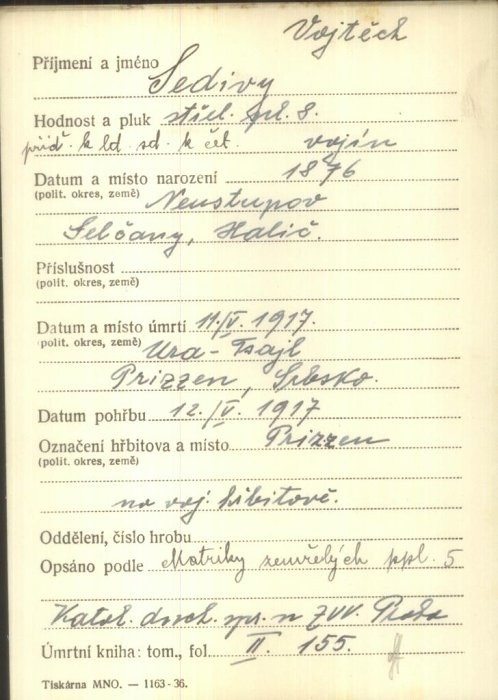 Vojtěch
Příjmení a jméno Sedivy
Hodnost a pluk střel. pl. 8.
přiď. k ld. sd. k čet. vojín
Datum a místo narození 1876
(polit. okres, země) Neustupov
Selčany, Halič.
Příslušnost
(polit. okres, země)
Datum a místo úmrtí 11./V. 1917.
(polit. okres, země) Ura-Tsajl
Prizzen, Srbsko.
Datum pohřbu 12./V. 1917
Označení hřbitova a místo Prizzen
(polit. okres, země)
na voj. hřbitově.
Oddělení, číslo hrobu
Opsáno podle Matriky zemřelých ppl. 5
Katol. duch. spr. n ZVV. Praha
Úmrtní kniha: tom., fol. II. 155.
Tiskárna MNO. — 1163-36.